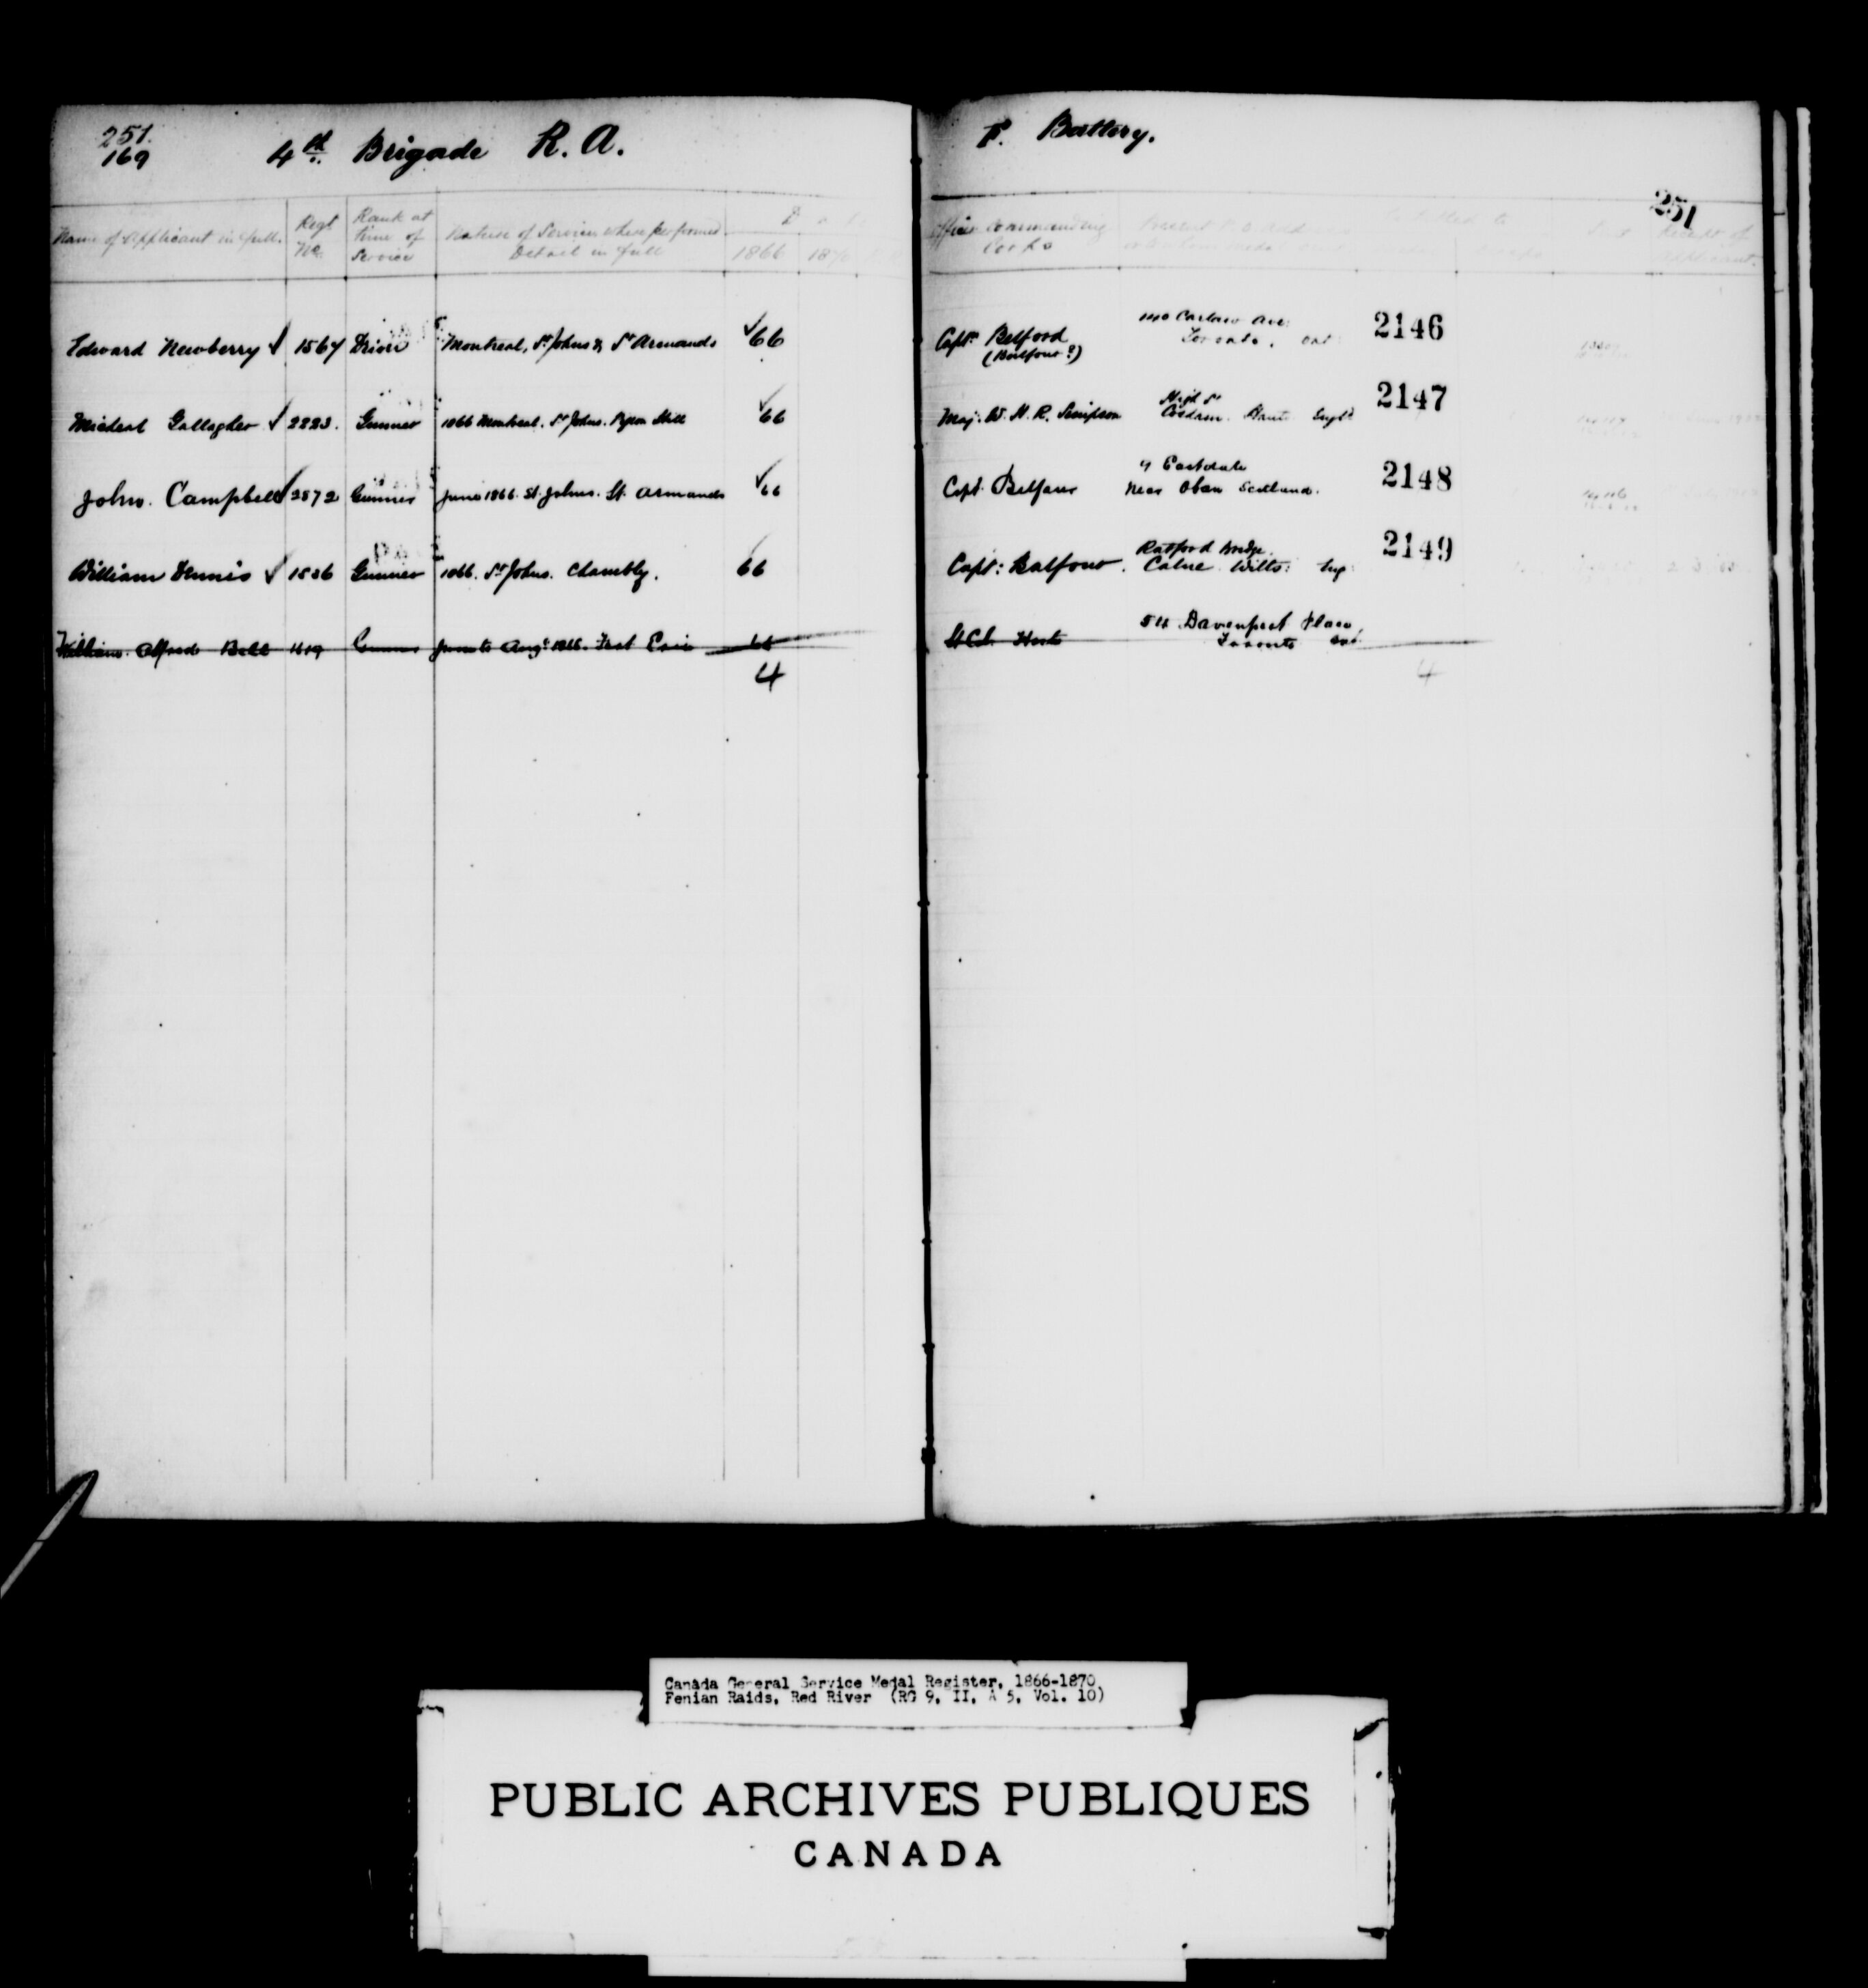 251.
169
4th Brigade R. A.
F. Battery.
251
Name of Applicant in full. Regt No. Rank at time of Service Nature of Service where performed Detail in full 1866 1870
Officer commanding Corps Receipt of Applicant.
Edward Newberry ✓ 1567 Driver Montreal, St Johns & St Armands ✓ 66 Captn Belford (Balfour?) Carlaw Ave. Toronto, Ont 2146
Michael Gallagher ✓ 2223. Gunner 1866 Montreal, St Johns. ✓ 66 Maj. W. H. R. Simpson High St Cosham. Hants. Engld 2147
John. Campbell ✓ 2872 Gunner June 1866. St. Johns. St. Armands ✓ 66 Capt. Near Oban Scotland. 2148
William Dennis ✓ 1536 Gunner 1866. St Johns. Chambly. 66 Capt: Balfour. Ratford Bridge. Calne. Wilts: Eng: 2149
William. Alfred Bell 1419 Gunner June to Augt 1866. Fort Erie 66 54 Davenport Place, Toronto Ont.
4
4
Canada General Service Medal Register, 1866-1870,
Fenian Raids, Red River (RG 9, II, A 5, Vol. 10)
PUBLIC ARCHIVES PUBLIQUES
CANADA